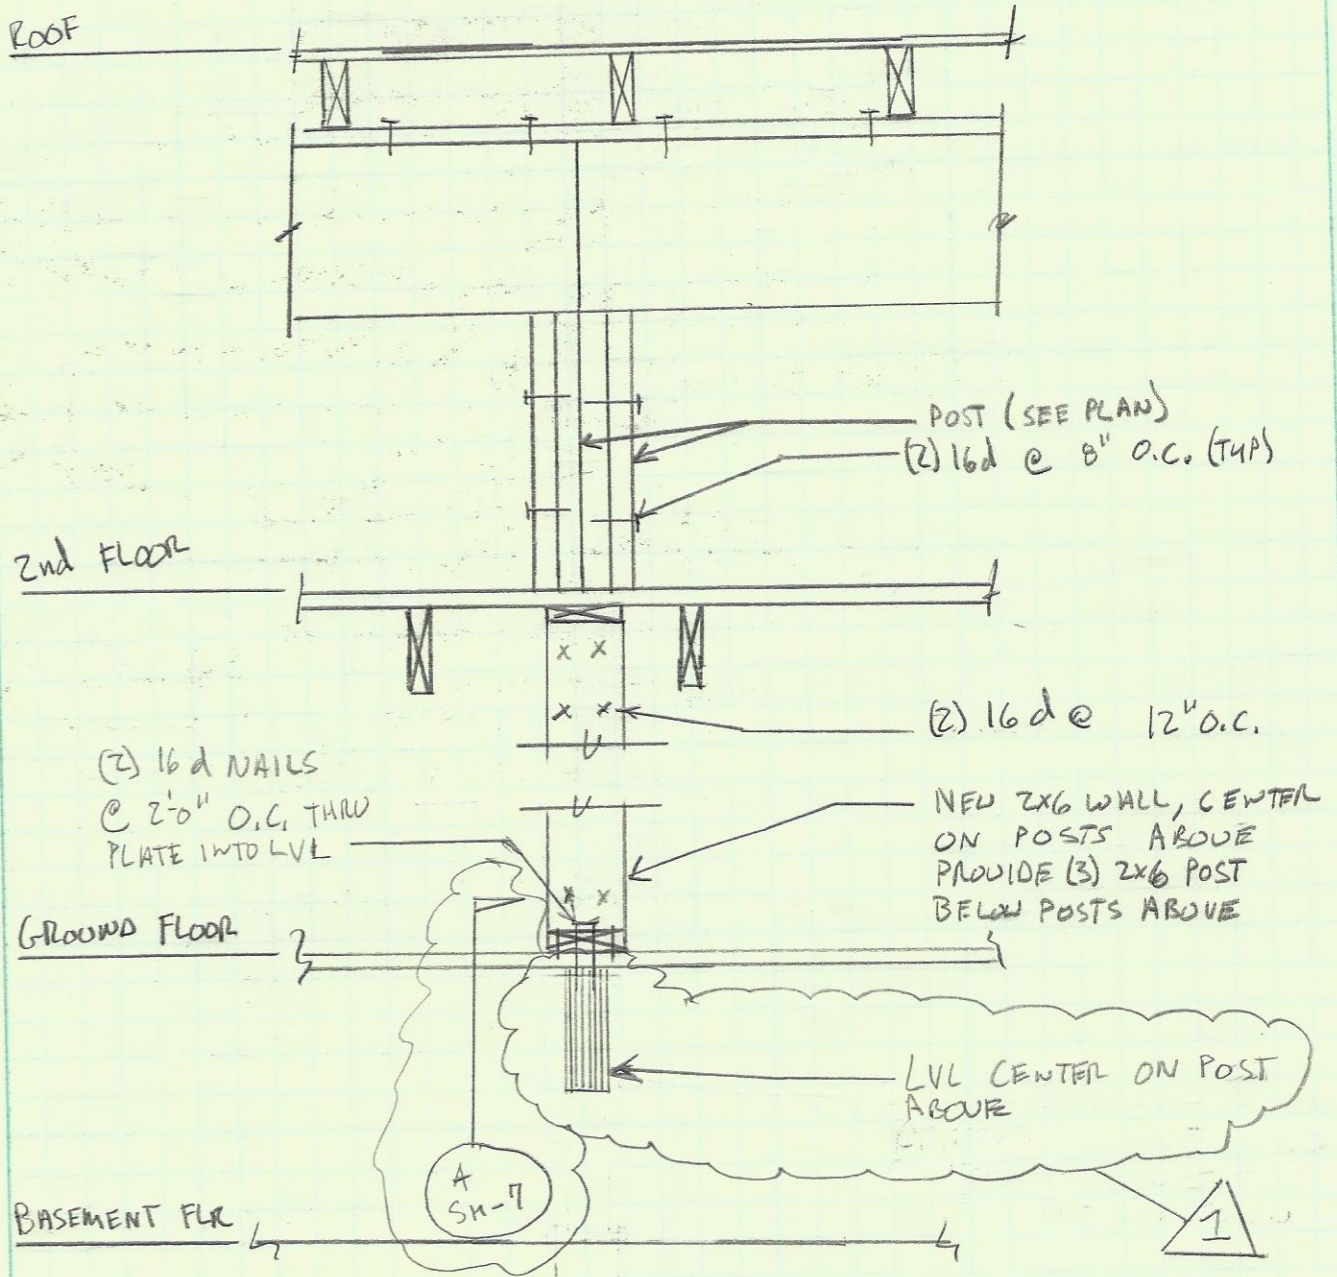 ROOF
POST (SEE PLAN)
(2) 16d @ 8" O.C. (TYP)
2nd FLOOR
(2) 16d @ 12" O.C.
(2) 16d NAILS
@ 2'-0" O.C. THRU
PLATE INTO LVL
NEW 2X6 WALL, CENTER
ON POSTS ABOVE
PROVIDE (3) 2X6 POST
BELOW POSTS ABOVE
GROUND FLOOR
LVL CENTER ON POST
ABOVE
A
SH-7
BASEMENT FLR
1